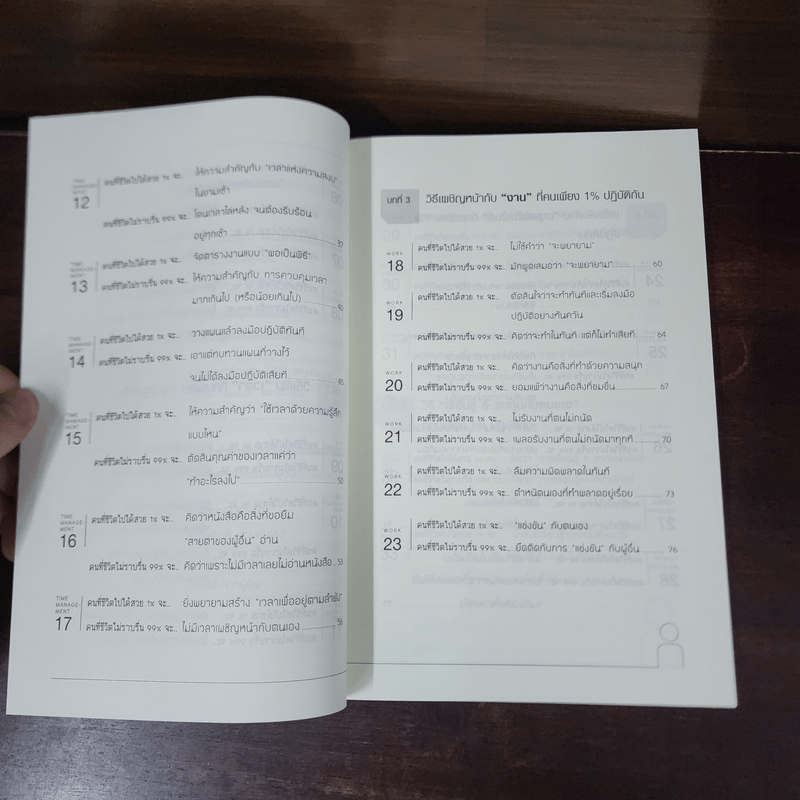 TIME
MANAGE-
MENT
12
คนที่ชีวิตไปได้สวย 1% จะ.. ให้ความสำคัญกับ "เวลาแห่งความสงบ"
ในยามเช้า
คนที่ชีวิตไม่ราบรื่น 99% จะ.. โดนเวลาไล่หลัง จนต้องรีบร้อน
อยู่ทุกเช้า 37
TIME
MANAGE-
MENT
13
คนที่ชีวิตไปได้สวย 1% จะ.. จัดตารางงานแบบ "พอเป็นพิธี"
คนที่ชีวิตไม่ราบรื่น 99% จะ.. ให้ความสำคัญกับ การควบคุมเวลา
มากเกินไป (หรือน้อยเกินไป) 40
TIME
MANAGE-
MENT
14
คนที่ชีวิตไปได้สวย 1% จะ.. วางแผนแล้วลงมือปฏิบัติทันที
คนที่ชีวิตไม่ราบรื่น 99% จะ.. เอาแต่ทบทวนแผนที่วางไว้
จนไม่ได้ลงมือปฏิบัติเสียที 45
TIME
MANAGE-
MENT
15
คนที่ชีวิตไปได้สวย 1% จะ.. ให้ความสำคัญว่า "ใช้เวลาด้วยความรู้สึก
แบบไหน"
คนที่ชีวิตไม่ราบรื่น 99% จะ.. ตัดสินคุณค่าของเวลาแค่ว่า
"ทำอะไรลงไป" 50
TIME
MANAGE-
MENT
16
คนที่ชีวิตไปได้สวย 1% จะ.. คิดว่าหนังสือคือสิ่งที่ขอยืม
"สายตาของผู้อื่น" อ่าน
คนที่ชีวิตไม่ราบรื่น 99% จะ.. คิดว่าเพราะไม่มีเวลาเลยไม่อ่านหนังสือ 53
TIME
MANAGE-
MENT
17
คนที่ชีวิตไปได้สวย 1% จะ.. ยิ่งพยายามสร้าง "เวลาเพื่ออยู่ตามลำพัง"
คนที่ชีวิตไม่ราบรื่น 99% จะ.. ไม่มีเวลาเผชิญหน้ากับตนเอง 56
บทที่ 3 วิธีเผชิญหน้ากับ "งาน" ที่คนเพียง 1% ปฏิบัติกัน
WORK
18
คนที่ชีวิตไปได้สวย 1% จะ.. ไม่ใช้คำว่า "จะพยายาม"
คนที่ชีวิตไม่ราบรื่น 99% จะ.. มักพูดเสมอว่า "จะพยายาม" 60
WORK
19
คนที่ชีวิตไปได้สวย 1% จะ.. ตัดสินใจว่าจะทำทันทีและเริ่มลงมือ
ปฏิบัติอย่างทันควัน
คนที่ชีวิตไม่ราบรื่น 99% จะ.. คิดว่าจะทำในทันที แต่ก็ไม่ทำเสียที 64
WORK
20
คนที่ชีวิตไปได้สวย 1% จะ.. คิดว่างานคือสิ่งที่ทำด้วยความสนุก
คนที่ชีวิตไม่ราบรื่น 99% จะ.. ยอมแพ้ว่างานคือสิ่งที่ขมขื่น 67
WORK
21
คนที่ชีวิตไปได้สวย 1% จะ.. ไม่รับงานที่ตนไม่ถนัด
คนที่ชีวิตไม่ราบรื่น 99% จะ.. เผลอรับงานที่ตนไม่ถนัดมาทุกที 70
WORK
22
คนที่ชีวิตไปได้สวย 1% จะ.. ลืมความผิดพลาดในทันที
คนที่ชีวิตไม่ราบรื่น 99% จะ.. ตำหนิตนเองที่ทำพลาดอยู่เรื่อย 73
WORK
23
คนที่ชีวิตไปได้สวย 1% จะ.. "แข่งขัน" กับตนเอง
คนที่ชีวิตไม่ราบรื่น 99% จะ.. ยึดติดกับการ "แข่งขัน" กับผู้อื่น 76